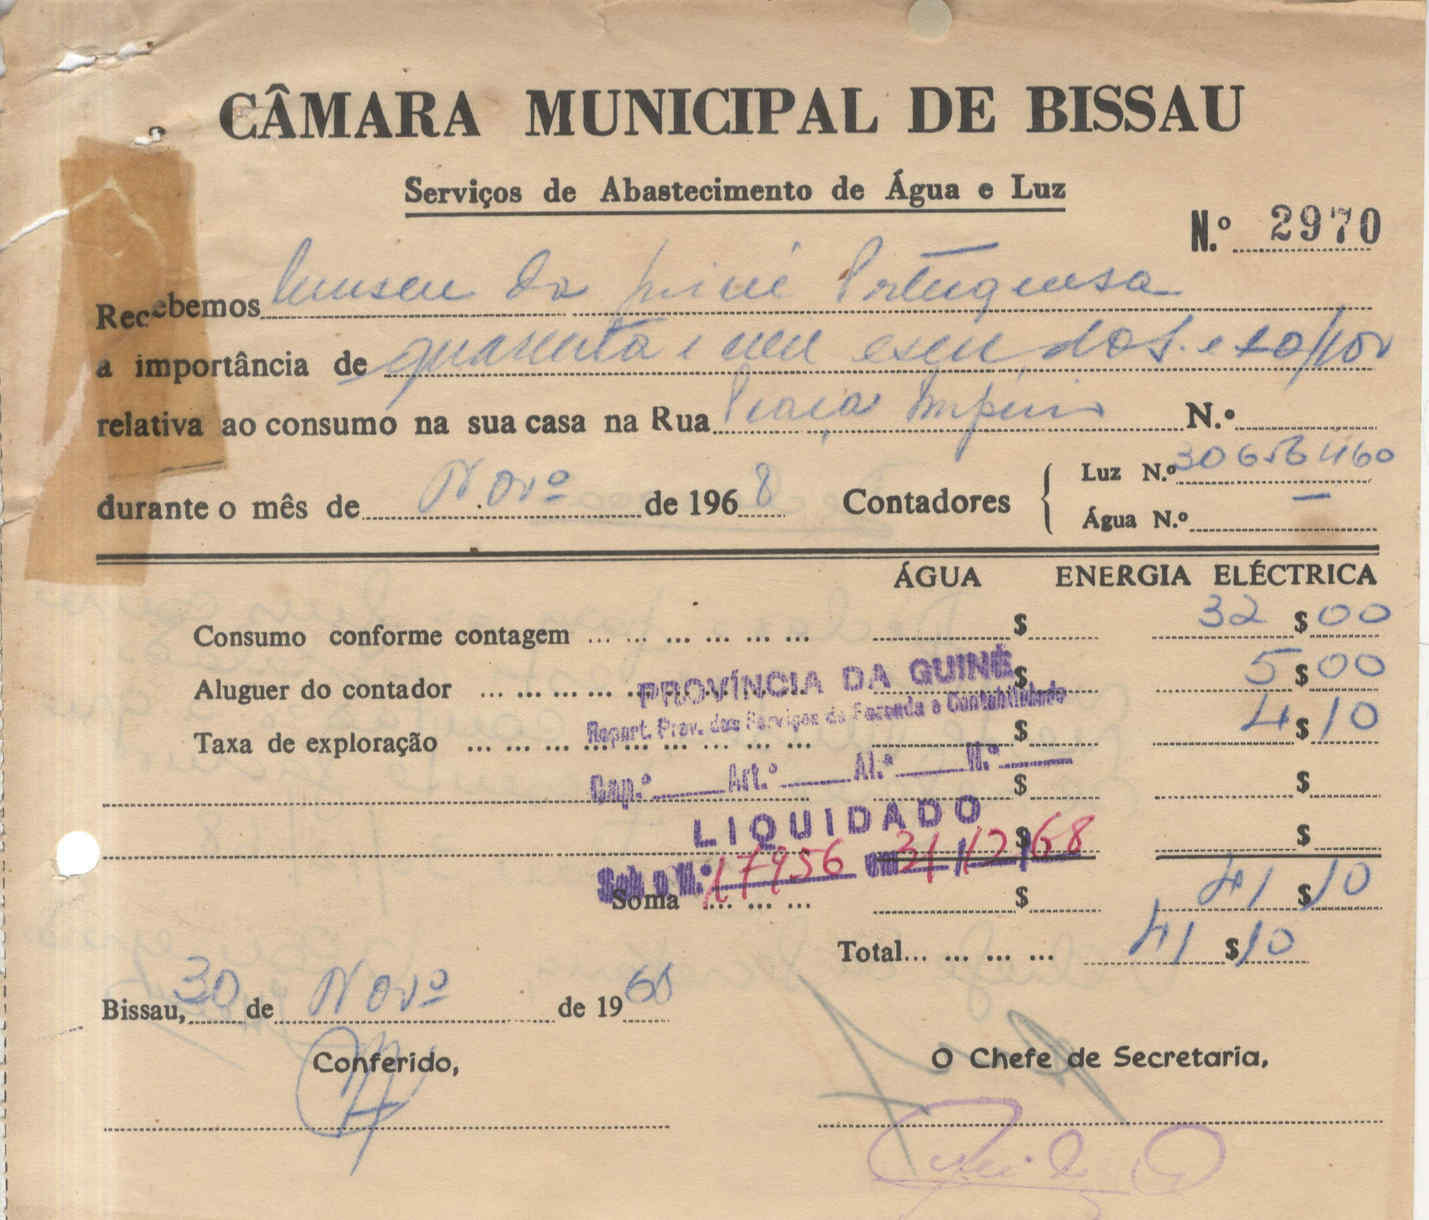 CÂMARA MUNICIPAL DE BISSAU
Serviços de Abastecimento de Água e Luz
N.º 2970
Recebemos Museu da Guiné Portuguesa
a importância de quarenta e um escudos e 10/100
relativa ao consumo na sua casa na Rua Praça Império N.º
durante o mês de Novº de 1968 Contadores
Luz N.º 30656460
Água N.º —
ÁGUA ENERGIA ELÉCTRICA
Consumo conforme contagem ... ... ... ... ... ... $ 32 $ 00
Aluguer do contador ... ... ... ... $ 5 $ 00
Taxa de exploração ... ... ... ... ... ... ... ... ... $ 4 $ 10
$ $
$ $
PROVÍNCIA DA GUINÉ
Repart. Prov. dos Serviços de Fazenda e Contabilidade
Cap.º Art.º Al.ª N.º
LIQUIDADO
Sob o N.º 17956 em 31/12/68
Soma ... ... ... $ 41 $ 10
Total... ... ... ... 41 $ 10
Bissau, 30 de Novº de 1968
Conferido,
O Chefe de Secretaria,